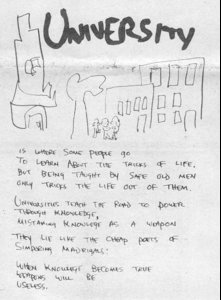 UNIVERSITY
IS WHERE SOME PEOPLE GO
TO LEARN ABOUT THE TRICKS OF LIFE,
BUT BEING TAUGHT BY SAFE OLD MEN
ONLY TRICKS THE LIFE OUT OF THEM.
UNIVERSITIES TEACH THE ROAD TO POWER
THROUGH KNOWLEDGE,
MISTAKING KNOWLEDGE AS A WEAPON
THEY LIE LIKE THE CHEAP POETS OF
SIMPERING MADRIGALS.
WHEN KNOWLEDGE BECOMES TRUE
WEAPONS WILL BE
USELESS.